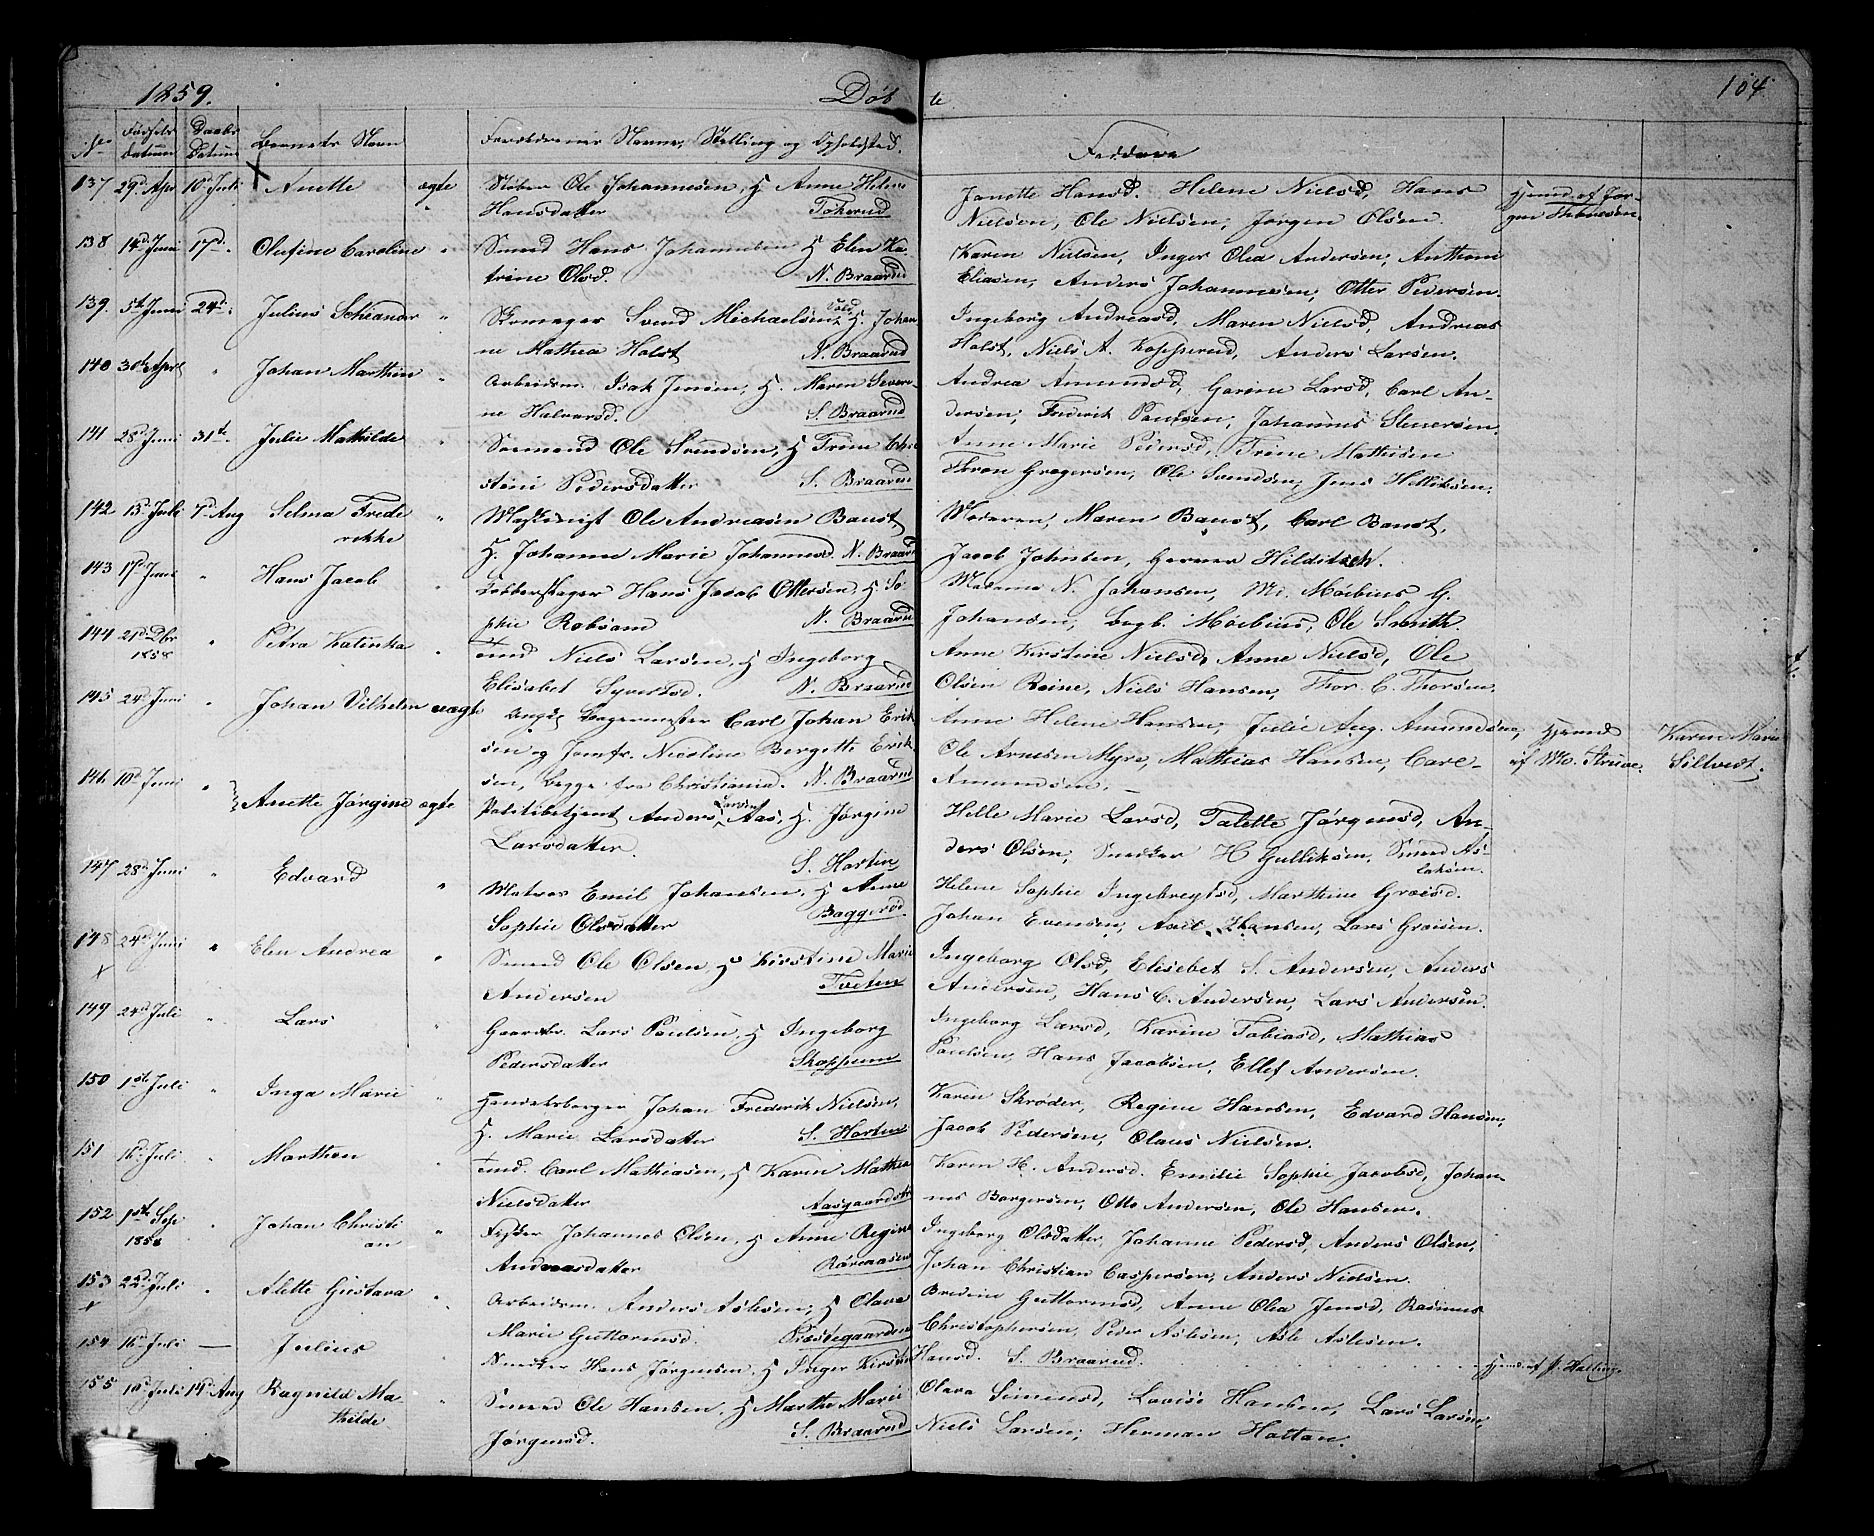 1859. Døb te 104
No Fødsels Datum Daabs Datum Barnets Navn Forældrenes Navne, Stilling og Opholdsted. Faddere
137 29d Apr. 10d Juli Anette ægte Ole Johannesen, H Anne Helene
Hansdatter Tokerud
Janette Hansd. Helene Nielsd, Hans
Nielsen, Ole Nielsen, Jørgen Olsen
Hjemd. af Jør-
138 14d Juni 17d Olufine Caroline " Smed Hans Johannesen H Elen Ka-
trine Olsd. N. Braarud
Karen Nielsen, Inger Olea Andersen, Anthon
Eliasen, Anders Johannesen, Otter Pedersen.
139. 5te Juni 24d Julius " Skomager Svend Michaelsen H. Johan
ne Mathea Holst N. Braarud
Ingeborg Andreasd, Maren Nielsd, Andreas
Holst, Niels A. Kopperud, Anders Larsen.
140 30te Apr " Johan Marthin " Arbeidsm. Isak Jensen, H. Maren Severi
ne Halvorsd. S. Braarud
Andrea Amundsd, Garine Larsd, Carl An-
dersen, Frederik Paulsen, Johannes Stenersen.
141 28d Juni 31te Julie Mathilde " Sømand Ole Svendsen, H Trine Chri
stine Pedersdatter S. Braarud
Anne Marie Pedersd, Trine Mathisen
Thron Gregersen, Ole Svendsen, Jens Helliksen.
142 13d Juli 7d Aug Selma Frede
rikke " Ole Andreasen Baust,
H. Johanne Marie Johannesd. N. Braarud
Moderen, Maren Baust, Carl Baust,
Jacob Johnsen, Herman Hilditsch.
143 17d Juni " Hans Jacob " Kobberslager Hans Jacob Ottersen, H So-
phie Robsam N. Braarud
Madame N. Johansen, Md. Møebius G.
Johansen, Møebius, Ole Smith.
144 21d Dbr 1858 " Petra Katinka " Tmd Niels Larsen, H Ingeborg
Elisabet Syvertsd. N. Braarud
Anne Kirstine Nielsd, Anne Nielsd, Ole
Olsen Reine, Niels Hansen, Thor C. Thorsen.
145 24d Juni " Johan Vilhelm uægte Angd. Bogermester Carl Johan Erik
sen og Jomfr. Nicoline Bergette Erik-
sen, begge fra Christiania. N. Braarud
Anne Helene Hansen, Julie Aug. Amundsen,
Ole Arnesen Myre, Mathias Hansen, Carl
Amundsen.
Hjemd
af Md. Struve. Karen Marie
146 10d Juni " Anette Jørgine ægte Politibetjent Anders Larsen Aas, H. Jørgine
Larsdatter S. Horten
Helle Marie Larsd, Talette Jørgensd, An-
ders Olsen, Snedker H Gulliksen, Smed As-
laksen.
147 28d Juni " Edvard " Matros Emil Johansen, H Anne
Sophie Olsdatter Baggerød
Helene Sophie Ingebregtsd, Marthine
Johan Evensen, Axel Hansen, Lars
148 24d Juni " Elen Andrea " Smed Ole Olsen, H Kirstine Marie
Andersen Tveten
Ingeborg Olsd, Elisebet S. Andersen, Anders
Andersen, Hans C. Andersen, Lars Andersen
149 24d Juli " Lars " Gaardbr. Lars Paulsen, H Ingeborg
Pedersdatter Skoppum
Ingeborg Larsd, Karine Tobiasd, Mathias
Paulsen, Hans Jacobsen, Ellef Andersen.
150 1ste Juli " Inga Marie " Handelsborger Johan Frederik Nielsen,
H. Marie Larsdatter S. Horten
Karen Skrøder, Regine Hansen, Edvard Hansen,
Jacob Pedersen, Olaus Nielsen.
151 16d Juli " Marthon " Tmd. Carl Mathiasen, H Karen Mathea
Nielsdatter Aasgaardstr.
Karen H. Andersd. Emilie Sophie Jacobsd, Johan-
nes Borgersen, Otto Andersen, Ole Hansen.
152 1ste Sep 1858 " Johan Christi
an " Fisker Johannes Olsen, H Anne Regine
Andreasdatter Røreaasen
Ingeborg Olsdatter, Johanne Pedersd, Anders Olsen,
Johan Christian Caspersen, Anders Nielsen.
153 22d Juli " Alette Gustava " Arbeidsm. Anders Aslesen, H Olava
Marie Guttormsd. Præstegaarden
Bredine Guttormsd, Anne Olea Jensd, Rasmus
Christophersen, Peder Aslesen, Asle Aslesen.
154 16d Juli — Julius " Snedker Hans Jørgensen H Inger Kirstine Hansd. S. Braarud. Hjemd. af
155 10d Juli 14d Aug Ragnild Ma-
thilde " Smed Ole Hansen, H Marthe Marie
Jørgensd. S. Braarud
Olava Simensd, Lovise Hansen, Lars Larsen,
Niels Larsen, Herman Hattan.